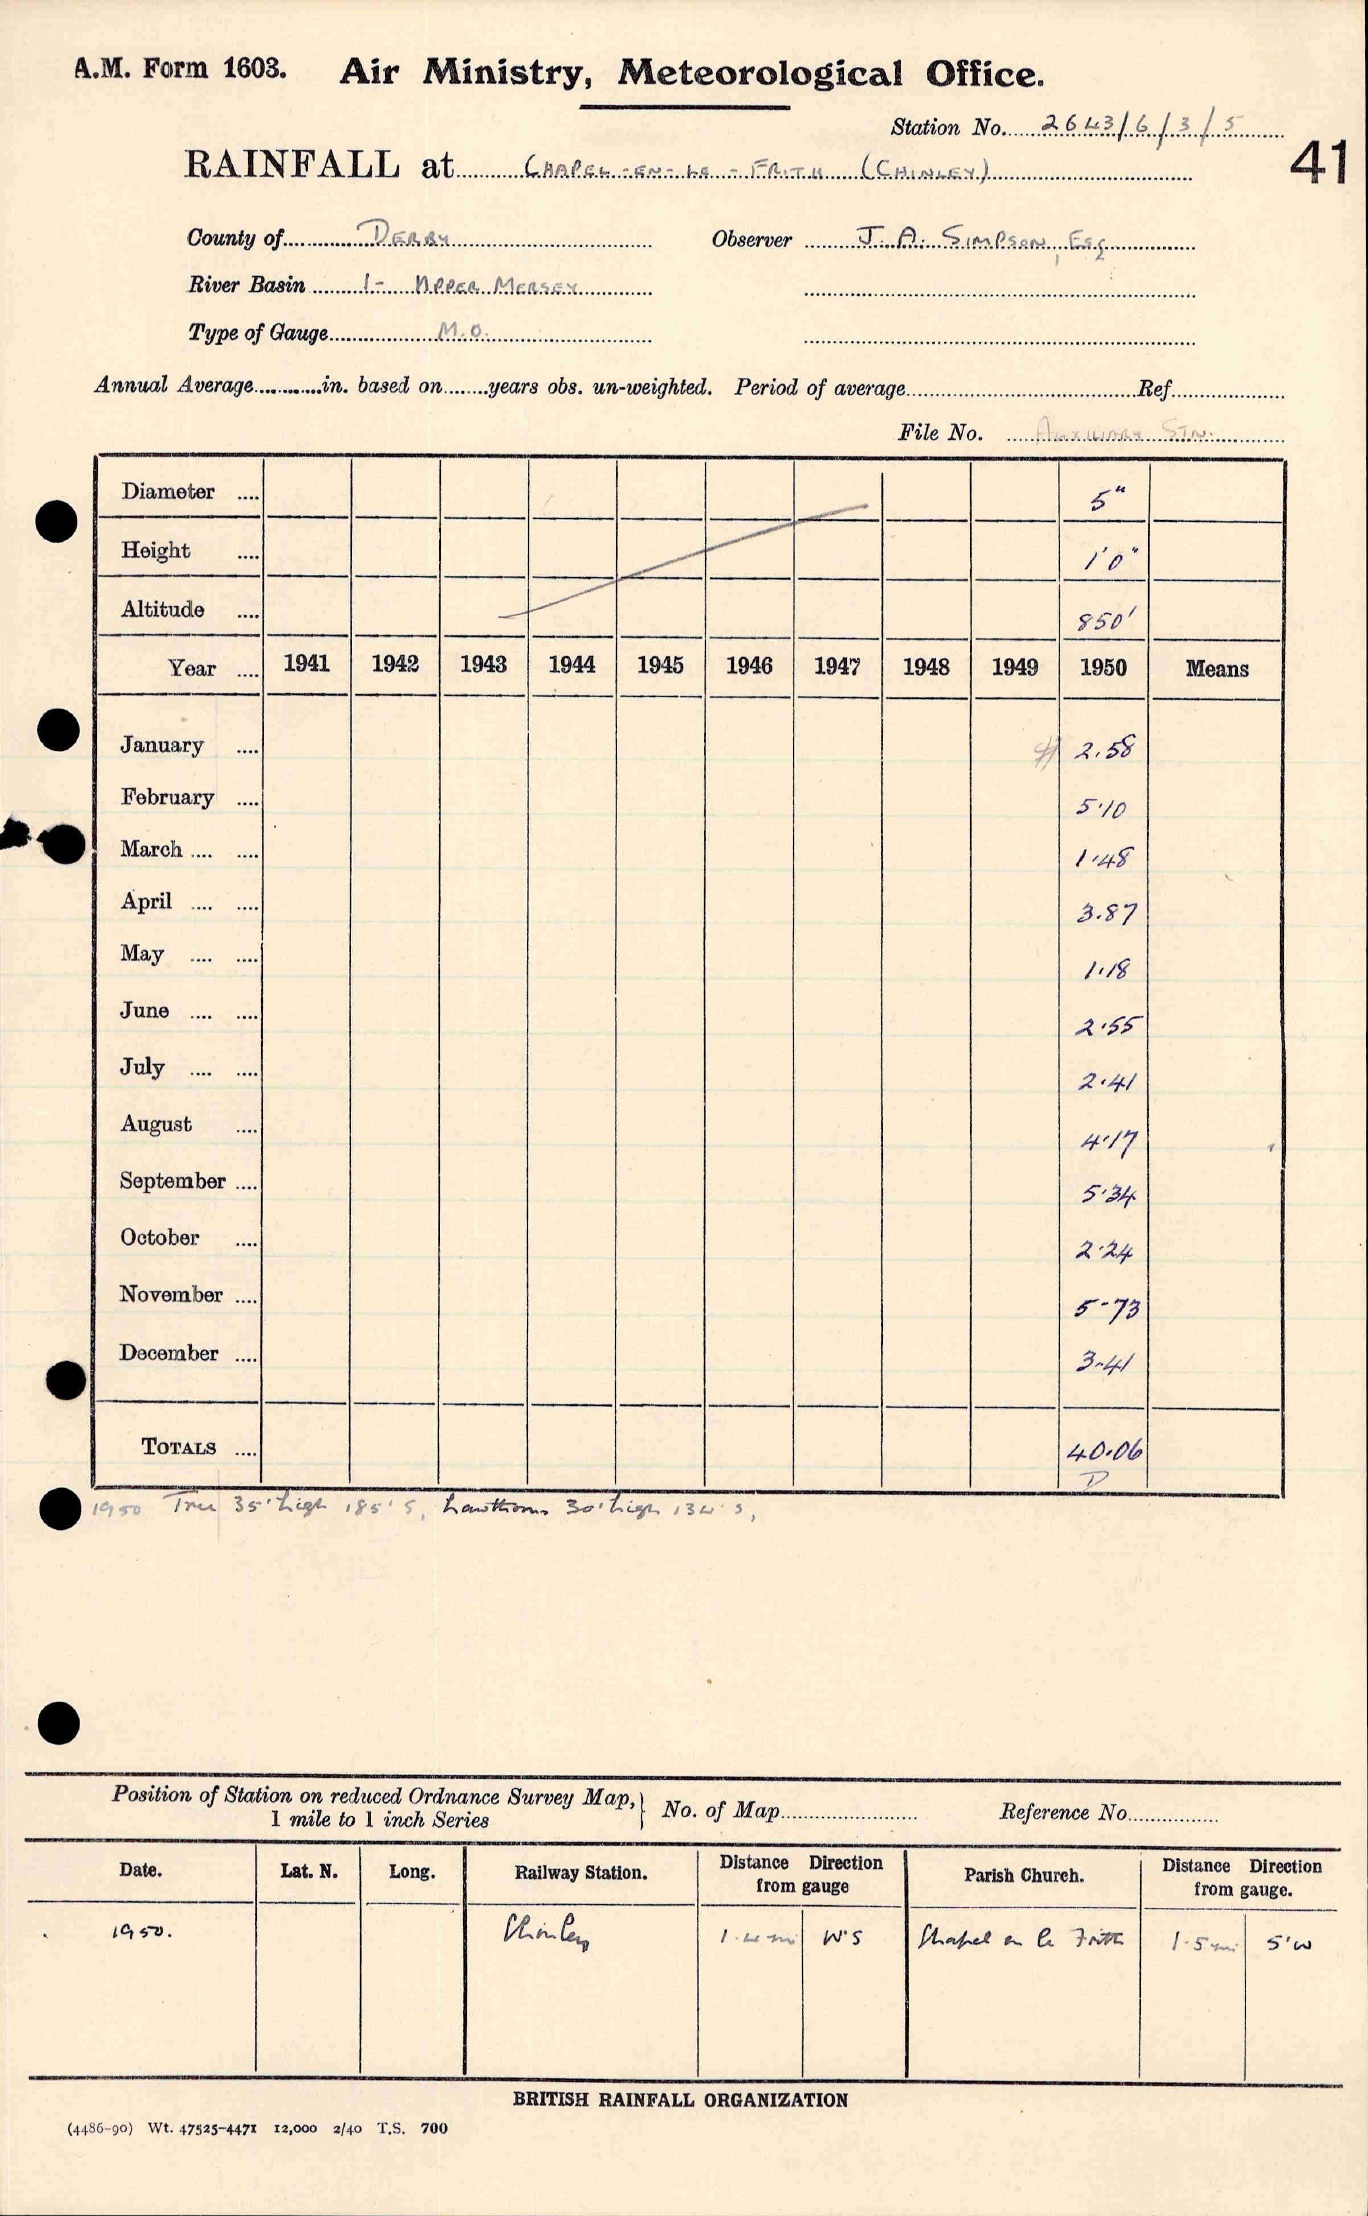 A.M. Form 1603. Air Ministry, Meteorological Office.
Station No. 2643/6/3/5
41
RAINFALL at CHAPEL-EN-LE-FRITH (CHINLEY)
County of DERBY Observer J. A. SIMPSON, ESQ
River Basin 1- UPPER MERSEY
Type of Gauge M.O.
Annual Average in. based on years obs. un-weighted. Period of average Ref
File No. AUXILIARY STN.
Diameter 5"
Height 1'0"
Altitude 850'
Year 1941 1942 1943 1944 1945 1946 1947 1948 1949 1950 Means
January # 2.58
February 5.10
March 1.48
April 3.87
May 1.18
June 2.55
July 2.41
August 4.17
September 5.34
October 2.24
November 5.73
December 3.41
TOTALS 40.06
D
1950 Tree 35' high 185' S, hawthorns 30' high 134' S,
Position of Station on reduced Ordnance Survey Map, 1 mile to 1 inch Series } No. of Map Reference No.
Date. Lat. N. Long. Railway Station. Distance Direction from gauge Parish Church. Distance Direction from gauge.
1950. Chinley 1.4 mi W'S Chapel en le Frith 1.5 mi S'W
BRITISH RAINFALL ORGANIZATION
(4486-90) Wt. 47525-4471 12,000 2/40 T.S. 700